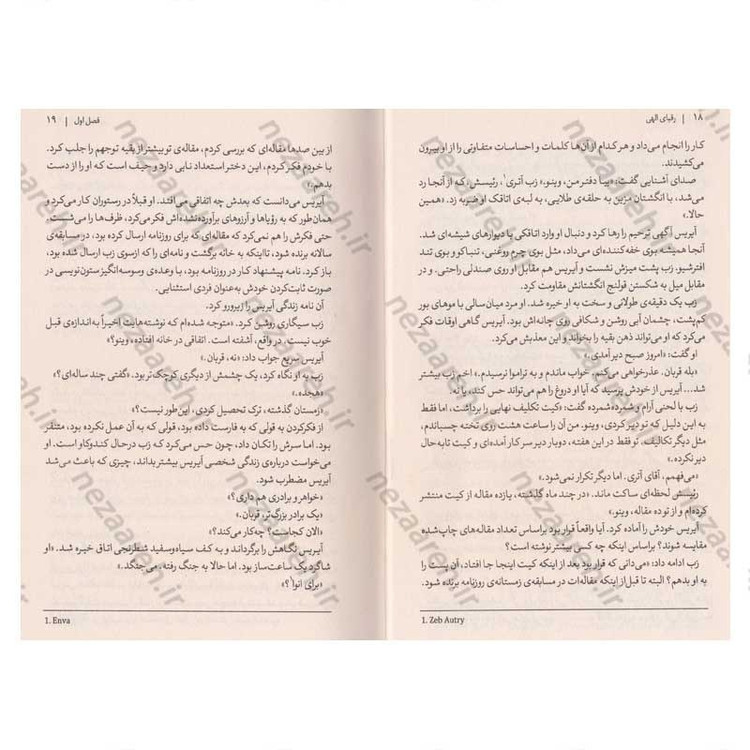 ۱۸ | رقبای الهی
کار را انجام می‌داد و هر کدام از آن‌ها کلمات و احساسات متفاوتی را از او بیرون
می‌کشیدند.
صدای آشنایی گفت: «بیا دفتر من، وینو.» زب آتری¹، رئیسش، که از آنجا رد
می‌شد، با انگشتان مزین به حلقه‌ی طلایی، به لبه‌ی اتاقک او ضربه زد. «همین
حالا.»
آیریس آگهی ترحیم را رها کرد و دنبال او وارد اتاقکی با دیوارهای شیشه‌ای شد.
آنجا همیشه بوی خفه‌کننده‌ای می‌داد، مثل بوی چرم روغنی، تنباکو و بوی تند
افترشیو. زب پشت میزش نشست و آیریس هم مقابل او روی صندلی راحتی. و در
مقابل میل به شکستن قولنج انگشتانش مقاومت کرد.
زب یک دقیقه‌ی طولانی و سخت به او خیره شد. او مرد میان‌سالی با موهای بور
کم‌پشت، چشمان آبی روشن و شکافی روی چانه‌اش بود. آیریس گاهی اوقات فکر
می‌کرد که او می‌تواند ذهن بقیه را بخواند و این معذبش می‌کرد.
او گفت: «امروز صبح دیر آمدی.»
«بله قربان. عذرخواهی می‌کنم. خواب ماندم و به تراموا نرسیدم.» اخم زب بیشتر
شد... آیریس از خودش پرسید که آیا او دروغ را هم می‌تواند حس کند، یا نه.
زب با لحنی آرام و شمرده‌شمرده گفت: «کیت تکلیف نهایی را برداشت، اما فقط
به این دلیل که تو دیر کردی، وینو. من آن را ساعت هشت روی تخته چسباندم،
مثل دیگر تکالیف. تو فقط در این هفته، دوبار دیر سر کار آمده‌ای و کیت تابه‌حال
دیر نکرده.»
«می‌فهمم، آقای آتری. اما دیگر تکرار نمی‌شود.»
رئیسش لحظه‌ای ساکت ماند. «در چند ماه گذشته، یازده مقاله از کیت منتشر
کرده‌ام و از تو ده مقاله، وینو.»
آیریس خودش را آماده کرد. آیا واقعاً قرار بود براساس تعداد مقاله‌های چاپ‌شده
مقایسه شوند؟ براساس اینکه چه کسی بیشتر نوشته است؟
زب ادامه داد: «می‌دانی که قرار بود بعد از اینکه کیت اینجا جا افتاد، آن پست را
به او بدهم؟ البته تا قبل از اینکه مقاله‌ات در مسابقه‌ی زمستانه‌ی روزنامه برنده شود.
1. Zeb Autry
فصل اول | ۱۹
از بین صدها مقاله‌ای که بررسی کردم، مقاله‌ی تو بیشتر از بقیه توجهم را جلب کرد.
با خودم فکر کردم، این دختر استعداد نابی دارد و حیف است که او را از دست
بدهم.»
آیریس می‌دانست که بعدش چه اتفاقی می‌افتد. او قبلاً در رستوران کار می‌کرد و
همان‌طور که به رؤیاها و آرزوهای برآورده‌نشده‌اش فکر می‌کرد، ظرف‌ها را می‌شست.
حتی فکرش را هم نمی‌کرد که مقاله‌ای که برای روزنامه ارسال کرده بود، در مسابقه‌ی
سالانه برنده شود، تااینکه به خانه برگشت و نامه‌ای را که ازسوی زب ارسال شده بود،
باز کرد. نامه پیشنهاد کار در روزنامه بود، با وعده‌ی وسوسه‌انگیز ستون‌نویسی در
صورت ثابت‌کردن خودش به‌عنوان فردی استثنایی.
آن نامه زندگی آیریس را زیرورو کرد.
زب سیگاری روشن کرد. «متوجه شده‌ام که نوشته‌هایت اخیراً به‌اندازه‌ی قبل
خوب نیست. در واقع، آشفته است. اتفاقی در خانه افتاده، وینو؟»
آیریس سریع جواب داد: «نه، قربان.»
زب به او نگاه کرد، یک چشمش از دیگری کوچک‌تر بود. «گفتی چند ساله‌ای؟»
«هجده.»
«زمستان گذشته، ترک تحصیل کردی، این‌طور نیست؟»
از فکرکردن به قولی که به فارست داده بود، قولی که به آن عمل نکرده بود، متنفر
بود. اما سرش را تکان داد، چون حس می‌کرد که زب درحال کندوکاو است. او
می‌خواست درباره‌ی زندگی شخصی آیریس بیشتر بداند، چیزی که باعث می‌شد
آیریس مضطرب شود.
«خواهر و برادری هم داری؟»
«یک برادر بزرگ‌تر، قربان.»
«الان کجاست؟ چه‌کار می‌کند؟»
آیریس نگاهش را برگرداند و به کف سیاه‌وسفید شطرنجی اتاق خیره شد. «او
شاگرد یک ساعت‌ساز بود. اما حالا به جنگ رفته. می‌جنگد.»
«برای انوا¹؟»
1. Enva
nezaareh.ir
nezaareh.ir
nezaareh.ir
nezaareh.ir
nezaareh.ir
nezaareh.ir